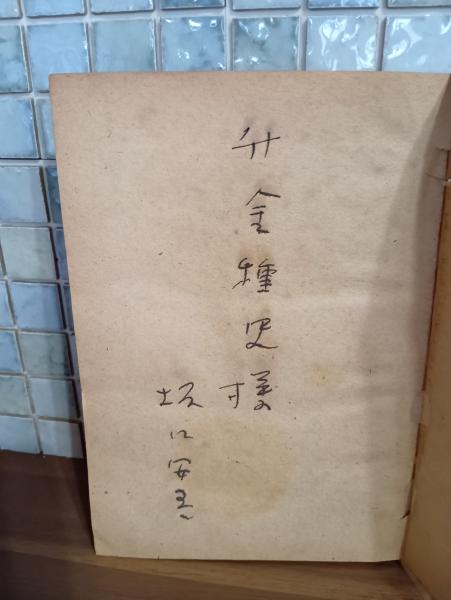 升金種史様
坂口安吾